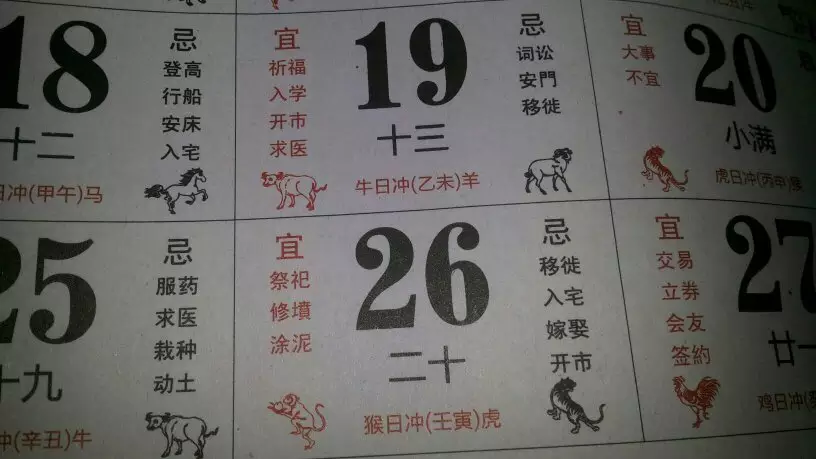 18
十二
忌
登高
行船
安床
入宅
日冲(甲午)马
宜
祈福
入学
开市
求医
19
十三
忌
词讼
安門
移徙
牛日冲(乙未)羊
宜
大事
不宜
20
小满
虎日冲(丙申)猴
25
十九
忌
服药
求医
栽种
动土
冲(辛丑)牛
宜
祭祀
修墳
涂泥
26
二十
忌
移徙
入宅
嫁娶
开市
猴日冲(壬寅)虎
宜
交易
立券
会友
签約
27
廿一
鸡日冲